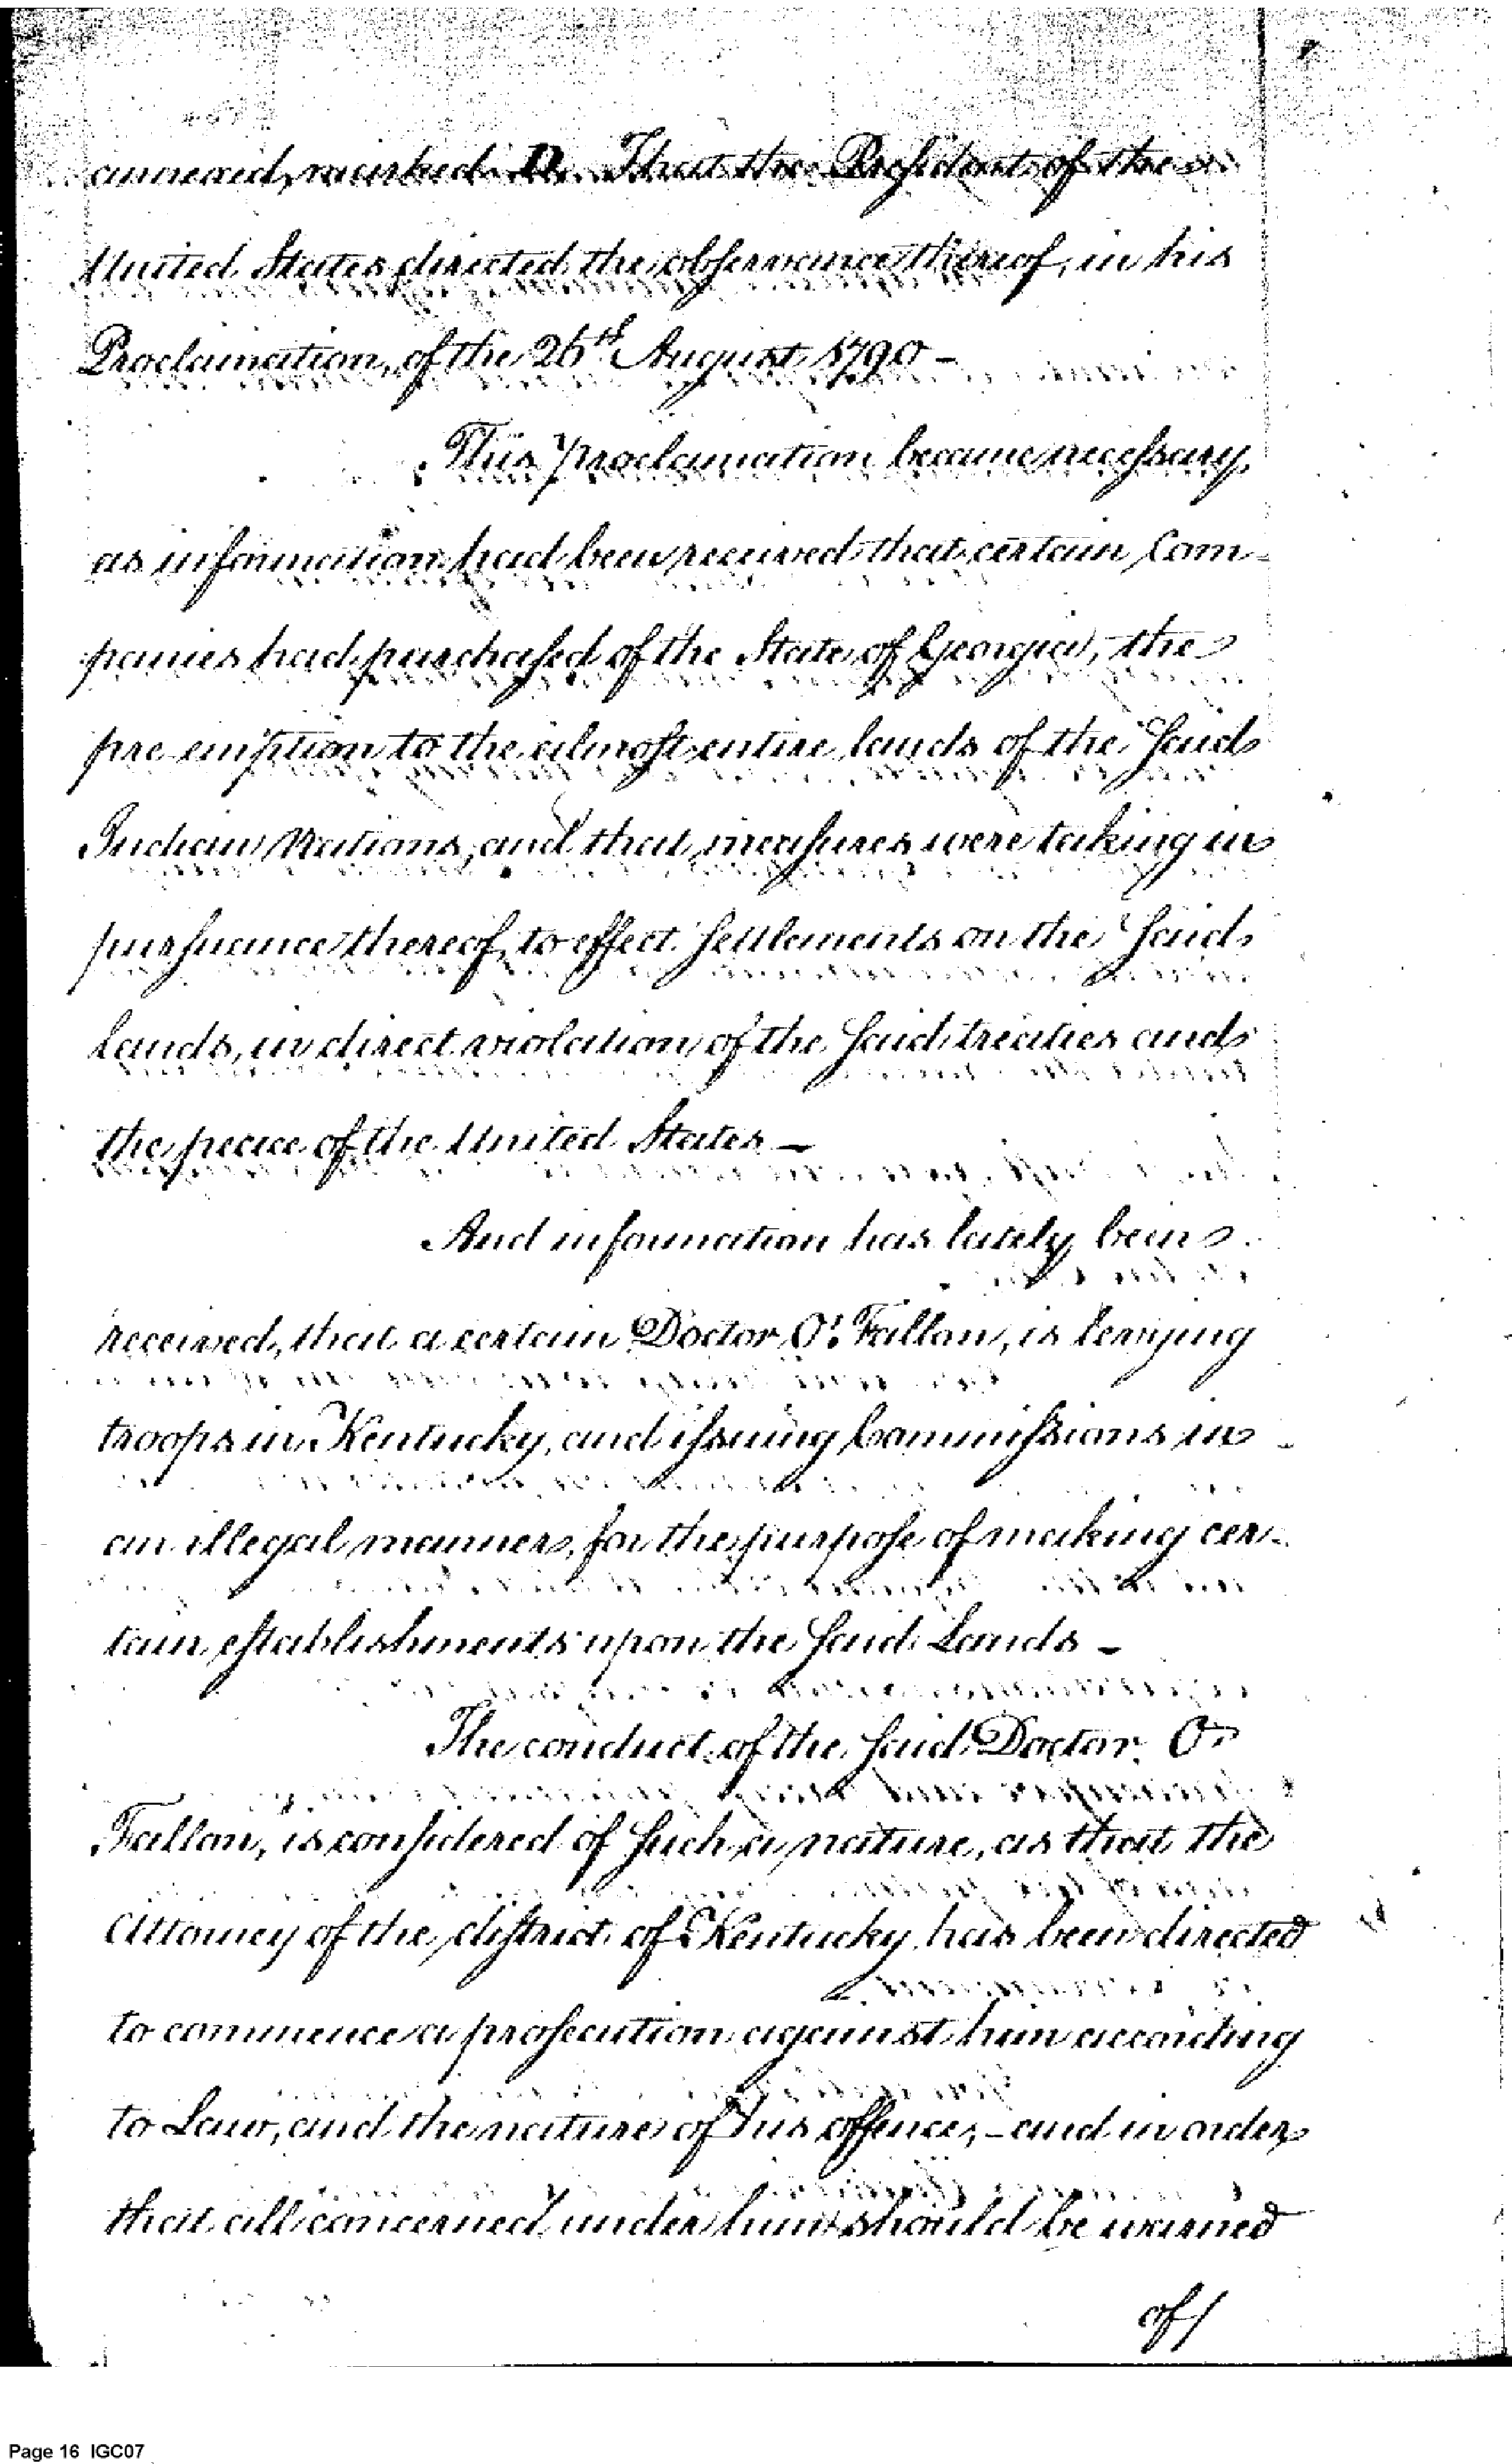 annexed, marked D. That the President of the
United States directed the observance thereof, in his
Proclamation, of the 26th August 1790 —
This proclamation became necessary,
as information had been received that certain Com-
panies had purchased of the State of Georgia, the
pre-emption to the almost entire lands of the said
Indian Nations, and that measures were taking in
pursuance thereof, to effect settlements on the said
lands, in direct violation of the said treaties and
the peace of the United States —
And information has lately been
received, that a certain Doctor O'Fallon, is levying
troops in Kentucky, and issuing Commissions in
an illegal manner, for the purpose of making cer-
tain establishments upon the said Lands —
The conduct of the said Doctor O
Fallon, is considered of such a nature, as that the
Attorney of the district of Kentucky has been directed
to commence a prosecution against him according
to Law, and the nature of his offence, — and in order
that all concerned under him should be warned
of/
Page 16 IGC07